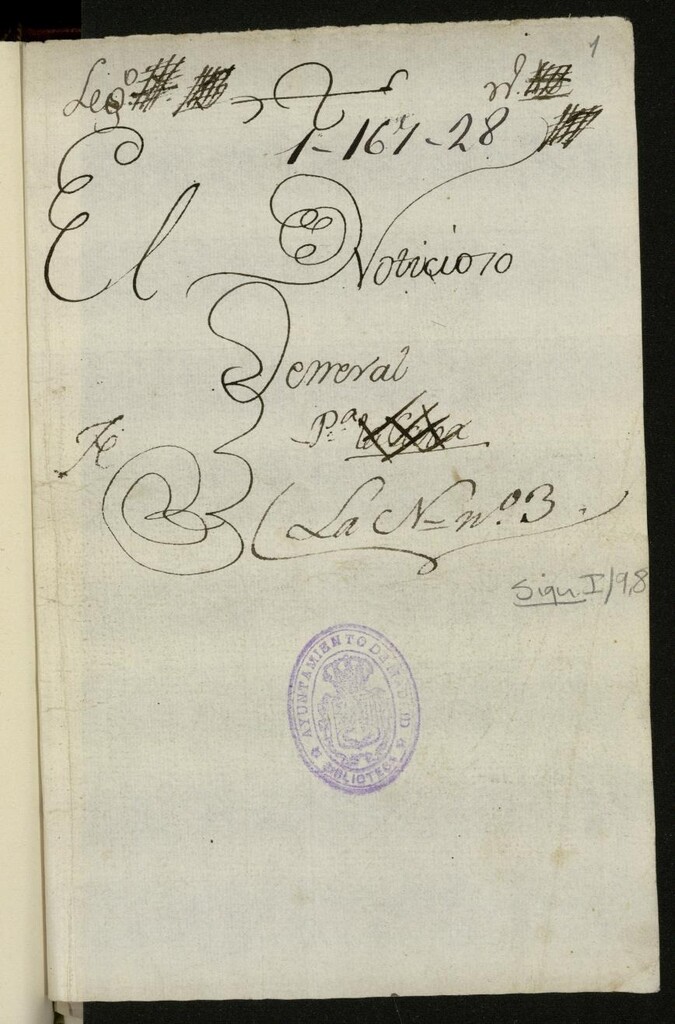 1
Leg.º T n.
1-167-28
El Noticioso
General
P.ª
La N= nº. 3
Sign. I/98
AYUNTAMIENTO DE MADRID
BIBLIOTECA